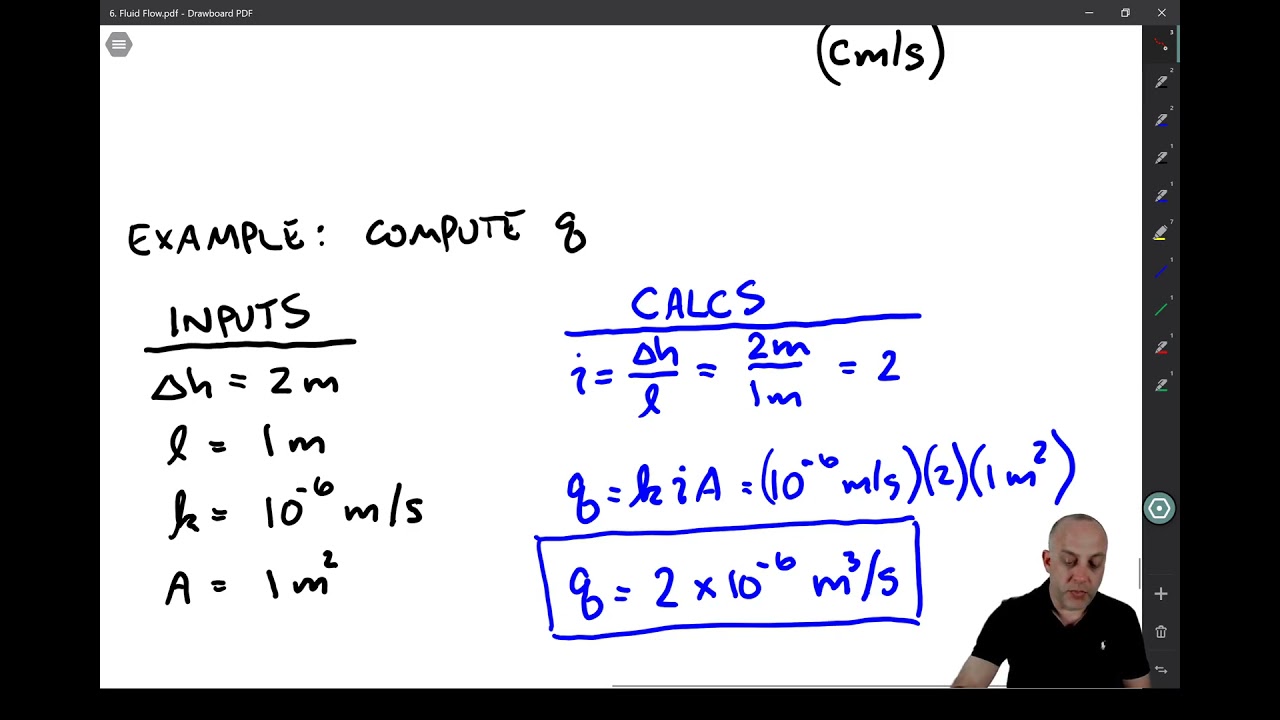 6. Fluid Flow.pdf - Drawboard PDF
(cm/s)
EXAMPLE: COMPUTE q
INPUTS
Δh = 2 m
l = 1 m
k = 10⁻⁶ m/s
A = 1 m²
CALCS
i = Δh/l = 2m/1m = 2
q = k i A = (10⁻⁶ m/s)(2)(1 m²)
q = 2 × 10⁻⁶ m³/s
3
2
2
1
1
7
1
1
1
1